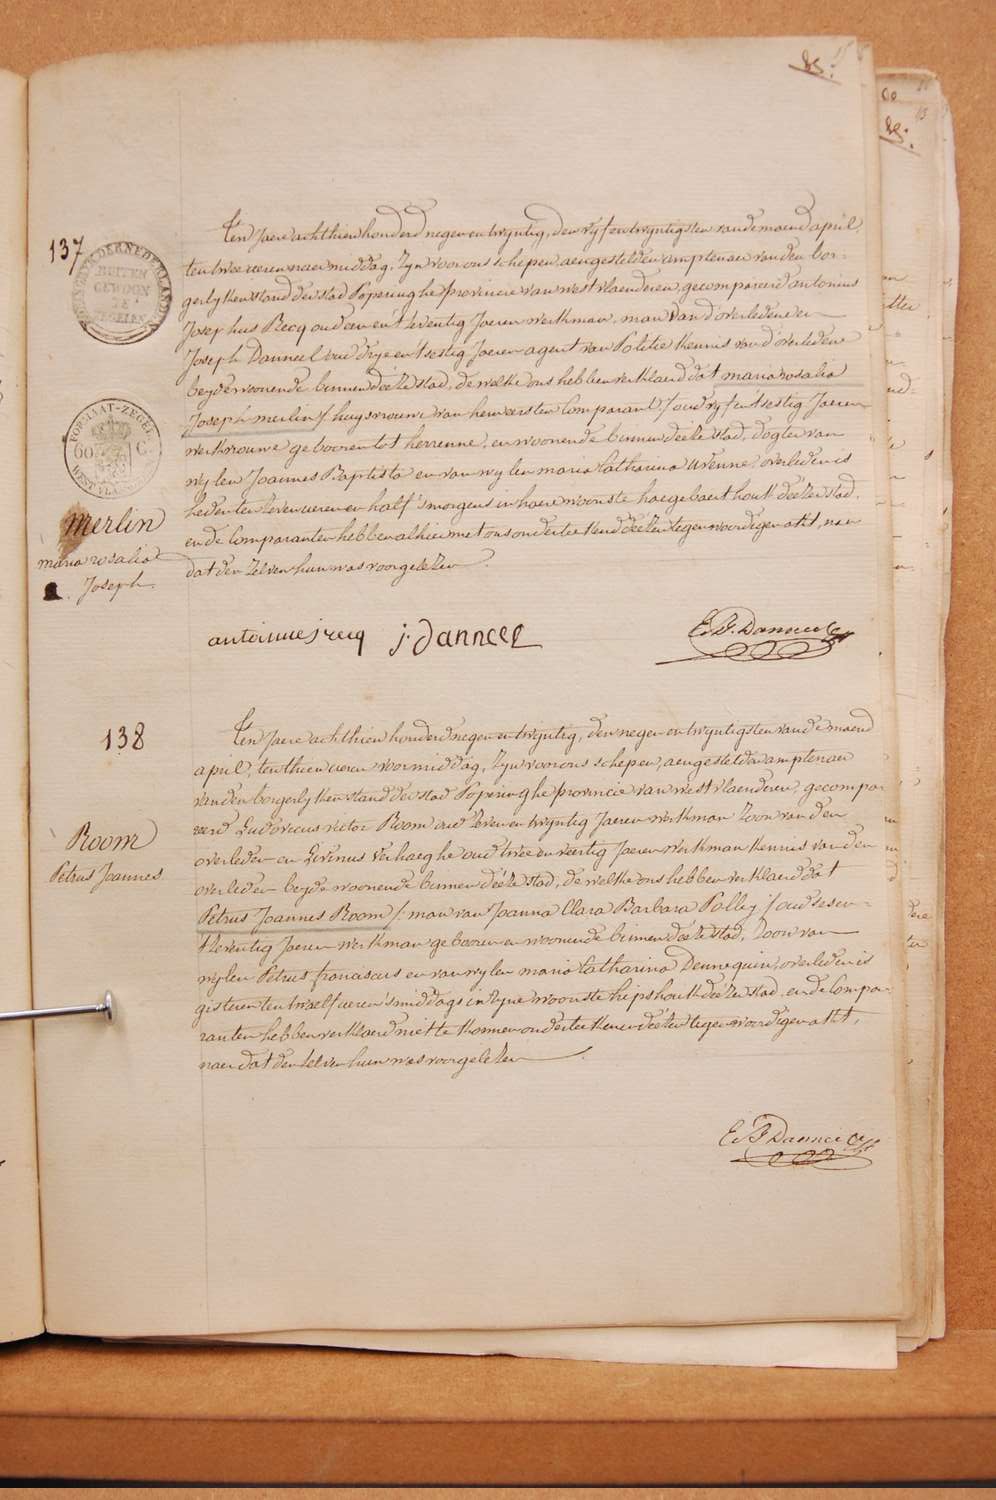 85:
137
KONINGRYK DER NEDERLANDEN
BUITEN
GEWOON
ZEGELEN
FORMAAT-ZEGEL
60 C
WEST VLA
Merlin
maria rosalia
Joseph.
Ten Jaere achthien honderd negen en twyntig, den vyf en twyntigsten van de maend april,
ten twee ueren naer middag, Zyn voor ons schepen, aengestelden amptenaer van den bor-
gerlyken stand der stad Poperinghe provincie van westvlaenderen, gecompareerd antonius
Josephus Recq oud een en t'seventig Jaeren werkman, man van d'overledene en
Joseph Danneel oud drye en t'sestig Jaeren agent van Politie kennis van d'overledene
beyde woonende binnen deéze stad, de welke ons hebben verklaerd dat maria rosalia
Joseph merlin /: huysvrouwe van hem eersten Comparant :/ oud vyf en t'sestig Jaeren
werkvrouwe gebooren tot herrenne, en woonende binnen deéze stad, dogter van
wylen Joannes Baptista en van wylen maria Catharina uvenne, overleden is
heden ten zeven ueren en half s'morgens in haere woonste haegebaert hout deéze stad,
en de Comparanten hebben alhier met ons onderteekend deézen tegenwoordigen akt, naer
dat den zelven hun was voorgelezen.
antoinne j recq j. Danneel E. F. Danneel
138
Room
Petrus Joannes
Ten Jaere achthien honderd negen en twyntig, den negen en twyntigsten van de maend
april, ten thien ueren voormiddag, Zyn voor ons schepen, aengestelden amptenaer
van den borgerlyken stand der stad Poperinghe provincie van westvlaenderen, gecompa-
reerd Ludovicus victor Room oud zeven en twyntig Jaeren werkman Zoon van den
overleden en Livinus Verhaeghe oud twee en veertig Jaeren werkman kennis van den
overleden beyde woonende binnen deéze stad, de welke ons hebben verklaerd dat
Petrus Joannes Room /: man van Joanna Clara Barbara Polley :/ oud ses en
t'seventig Jaeren werkman gebooren en woonende binnen deéze stad, Zoon van
wylen Petrus franciscus en van wylen maria Catharina Dennequin, overleden is
gisteren ten twaelf ueren s'middags in zyne woonste hipshoek deéze stad, en de Compa-
ranten hebben verklaerd niet te konnen onderteekenen deézen tegenwoordigen akt,
naer dat den zelven hun was voorgelezen.
E. F. Danneel